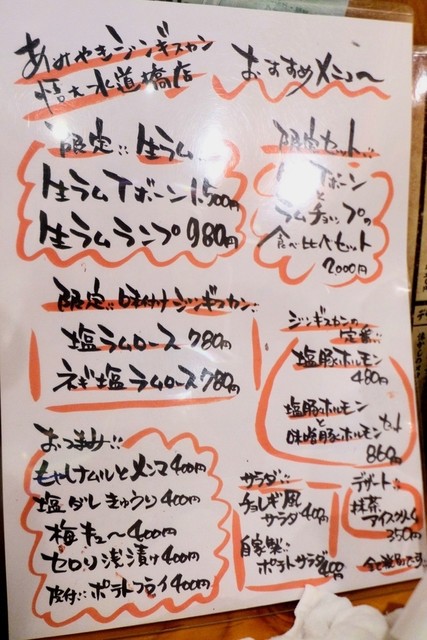 あみやきジンギスカン
悟大 水道橋店
おすすめメニュ〜
限定!! 生ラム
生ラムTボーン 1,500円
生ラムランプ 980円
限定セット!!
生Tボーン
と
ラムチョップの
食べ比べセット
2000円
限定!! 味付けジンギスカン!!
塩ラムロース 780円
ネギ塩ラムロース 780円
ジンギスカンの
定番!!
塩豚ホルモン
480円
塩豚ホルモン
と
味噌豚ホルモン セット
860円
おつまみ!!
もやしナムルとメンマ 400円
塩ダレきゅうり 400円
梅キュ〜 400円
セロリ浅漬け 400円
皮付!! ポテトフライ 400円
サラダ!!
チョレギ風
サラダ 400円
自家製!!
ポテトサラダ 400円
デザート!!
抹茶
アイスクリーム
350円